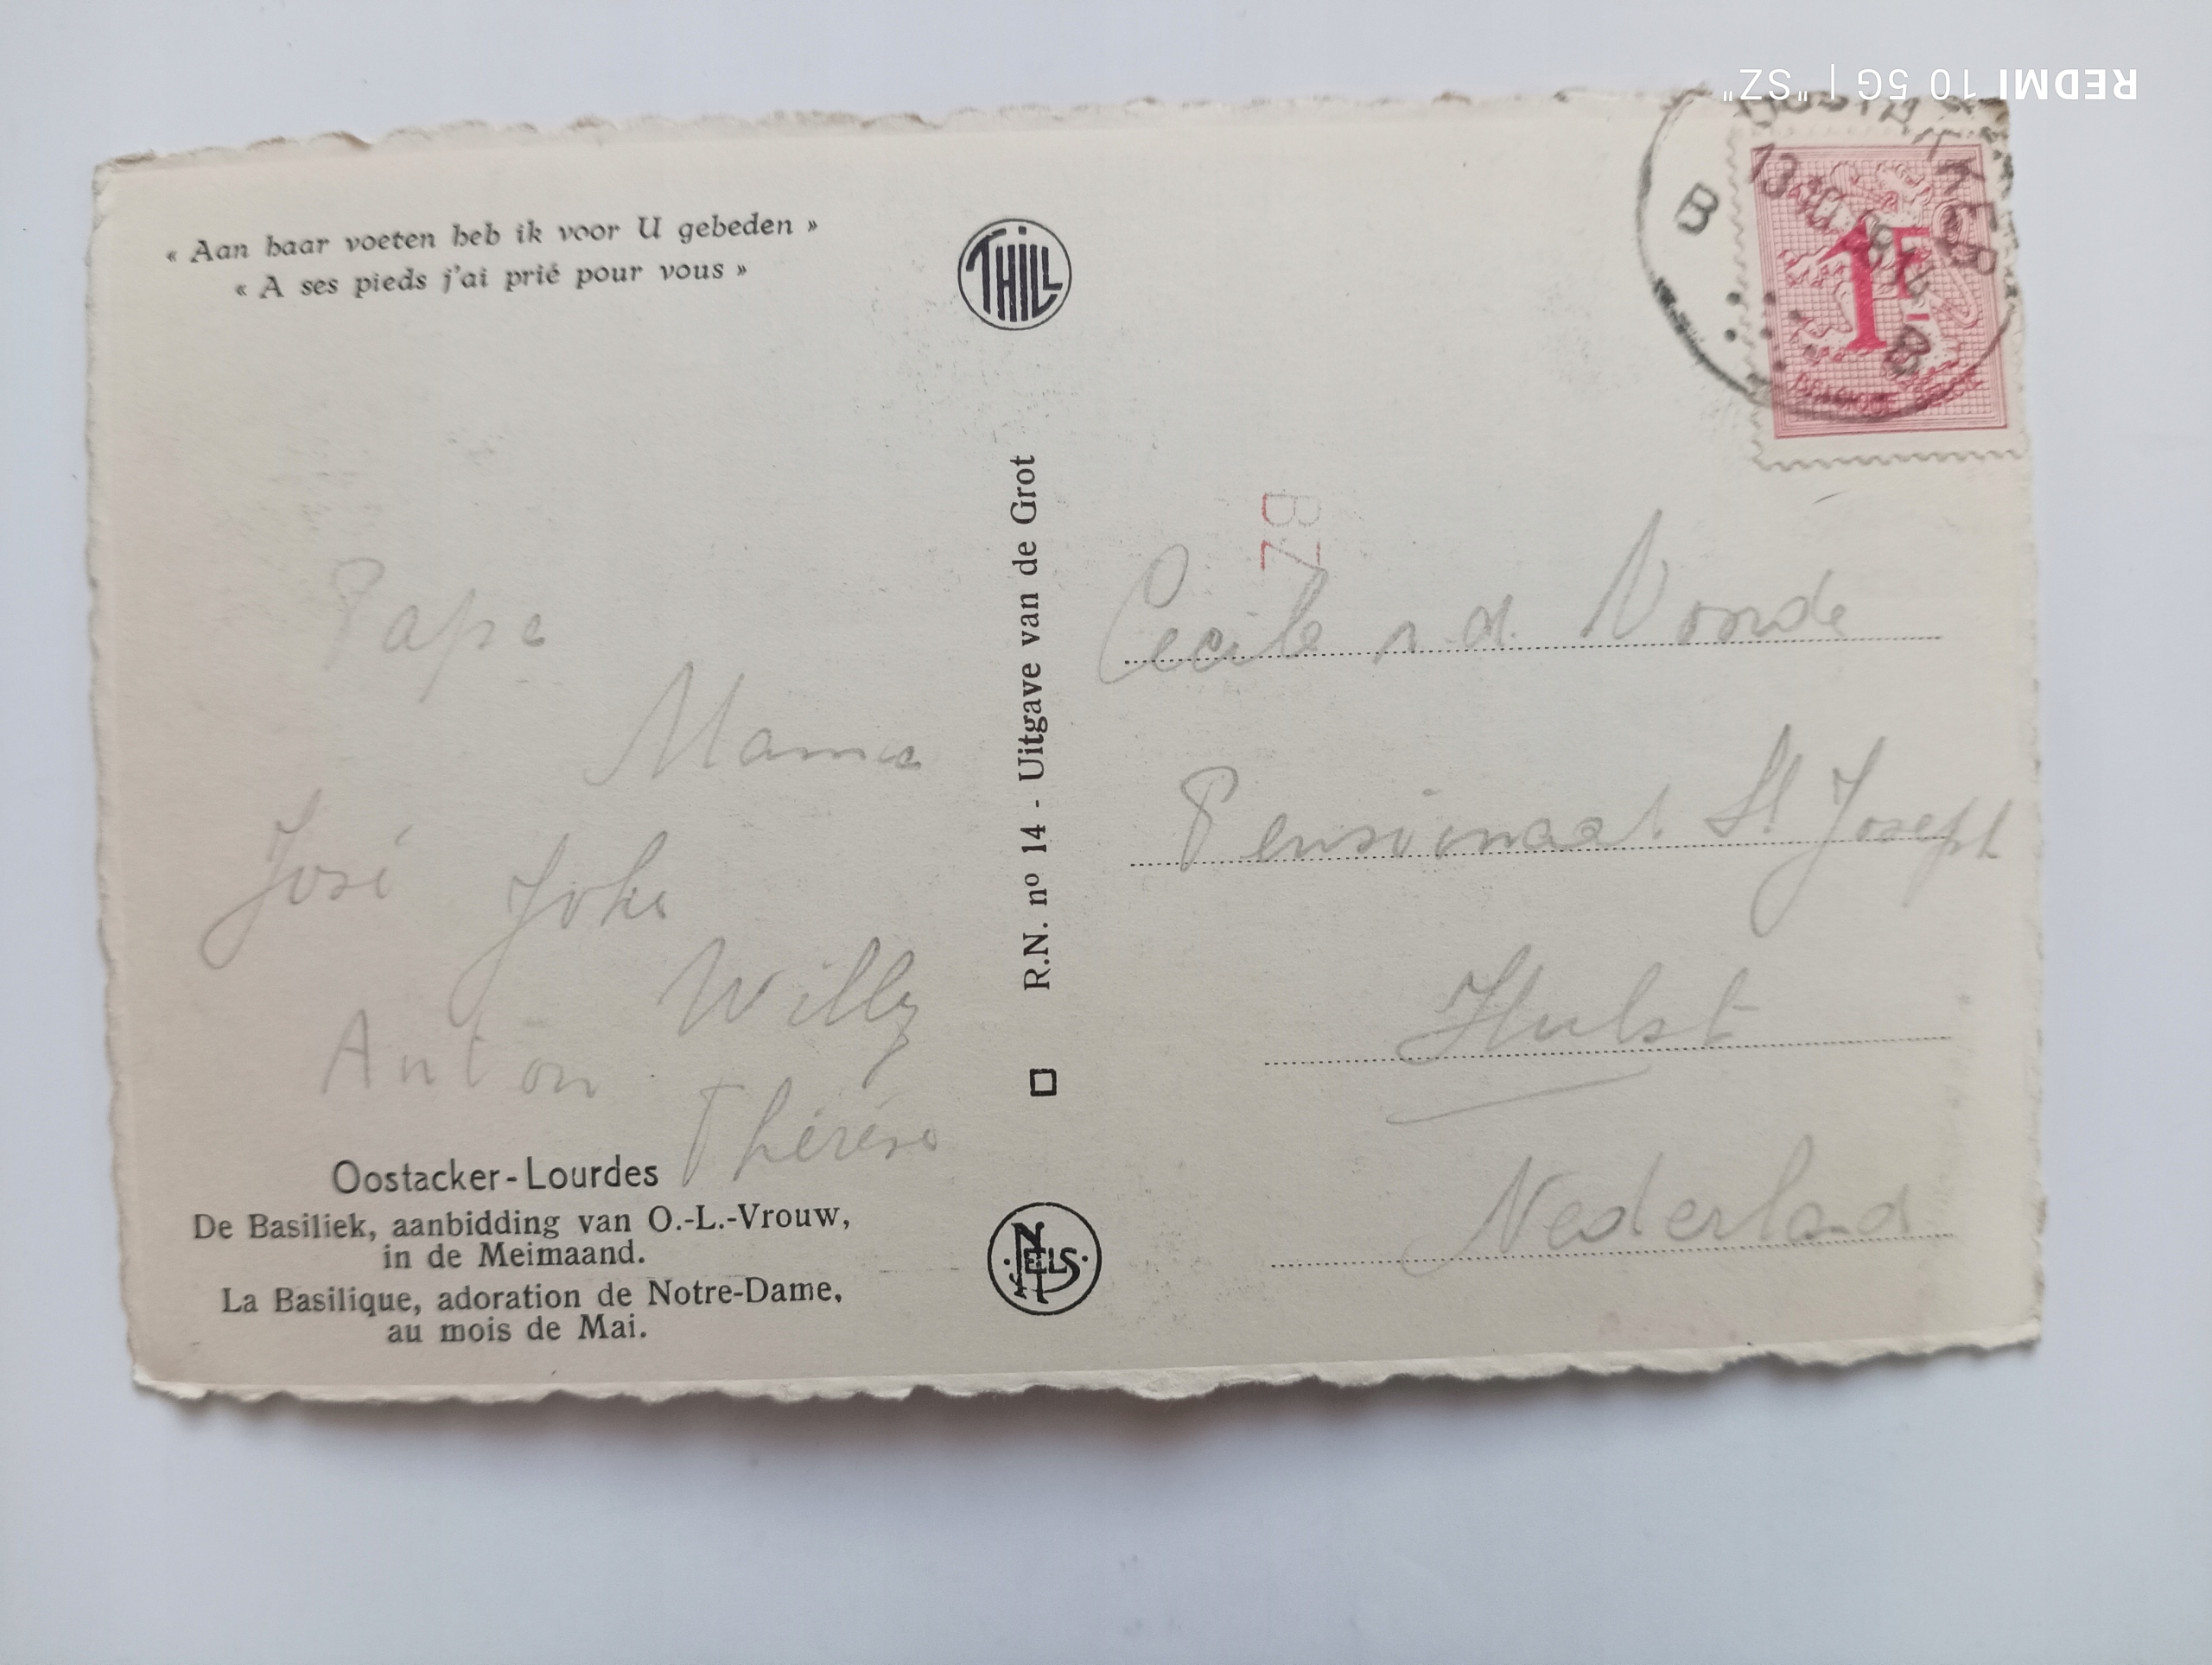 « Aan haar voeten heb ik voor U gebeden »
« A ses pieds j'ai prié pour vous »
Papa
Mama
José Joke
Willy
Anton
Thérèse
Oostacker-Lourdes
De Basiliek, aanbidding van O.-L.-Vrouw,
in de Meimaand.
La Basilique, adoration de Notre-Dame,
au mois de Mai.
THILL
R.N. nº 14 - Uitgave van de Grot
NELS
B
B
1F
BZ
Cecile v.d. Voorde
Pensionaat St Joseph
Hulst
Nederland
REDMI 10 5G | "SZ"